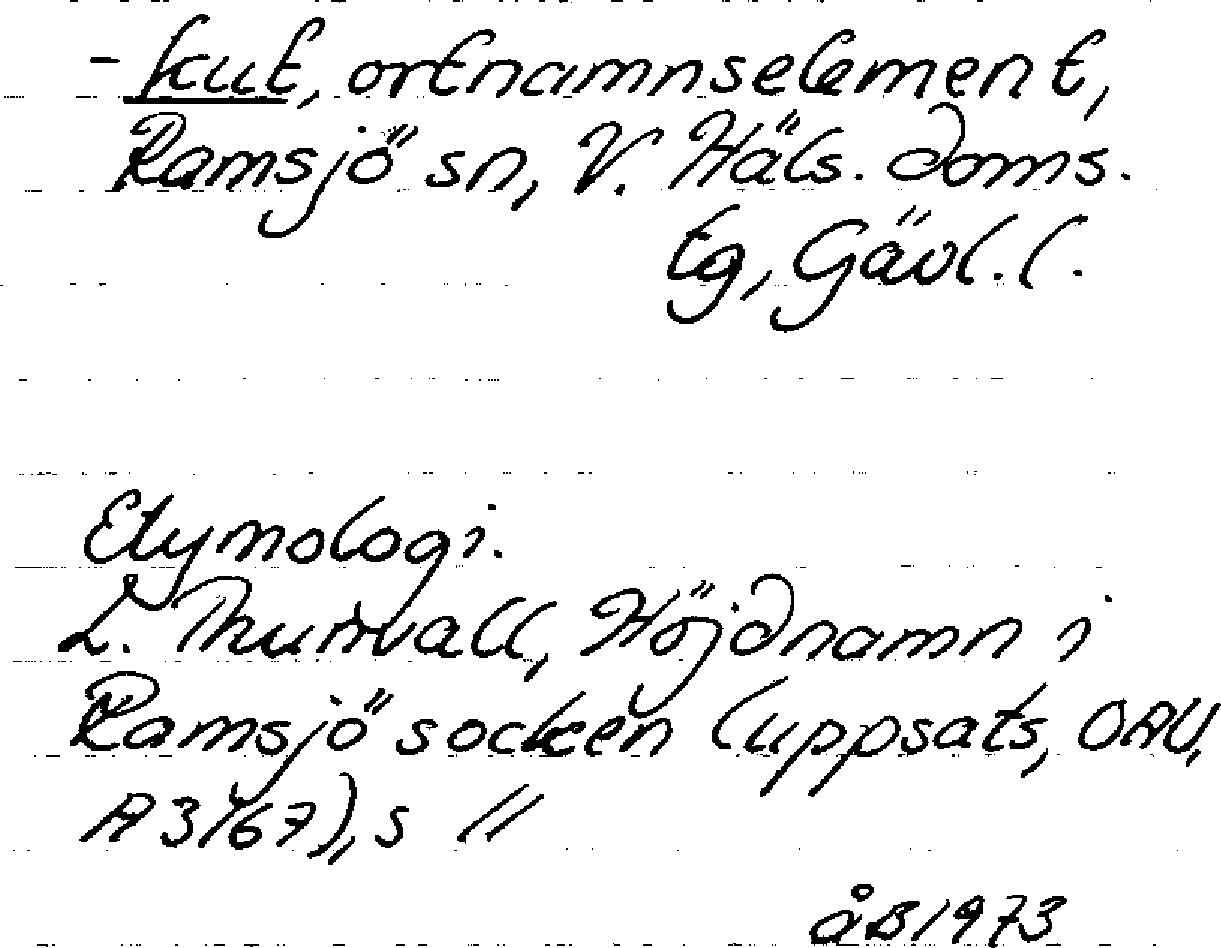 -kut, ortnamnselement,
Ramsjö sn, V. Häls. doms.
tg, Gävl. l.
Etymologi.
L. Thunvall, Höjdnamn i
Ramsjö socken (uppsats, OAU,
A 3/67), s 11
åB 1973